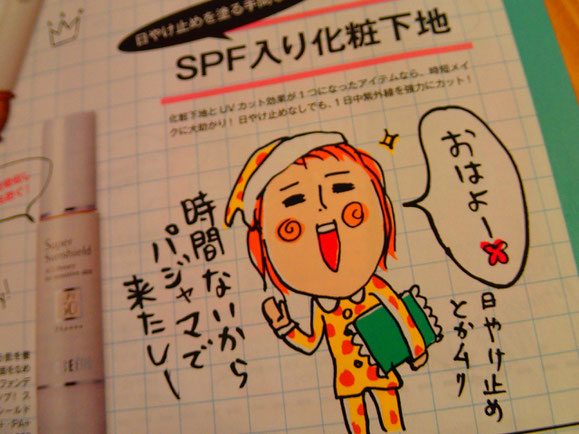 日やけ止めを塗る手間
SPF入り化粧下地
化粧下地とUVカット効果が1つになったアイテムなら、時短メイ
クに大助かり！日やけ止めなしでも、1日中紫外線を強力にカット！
おはよー
日やけ止め
とかムリ
時間ないから
パジャマで
来たしー
Super
Sunshield
50
PA++++